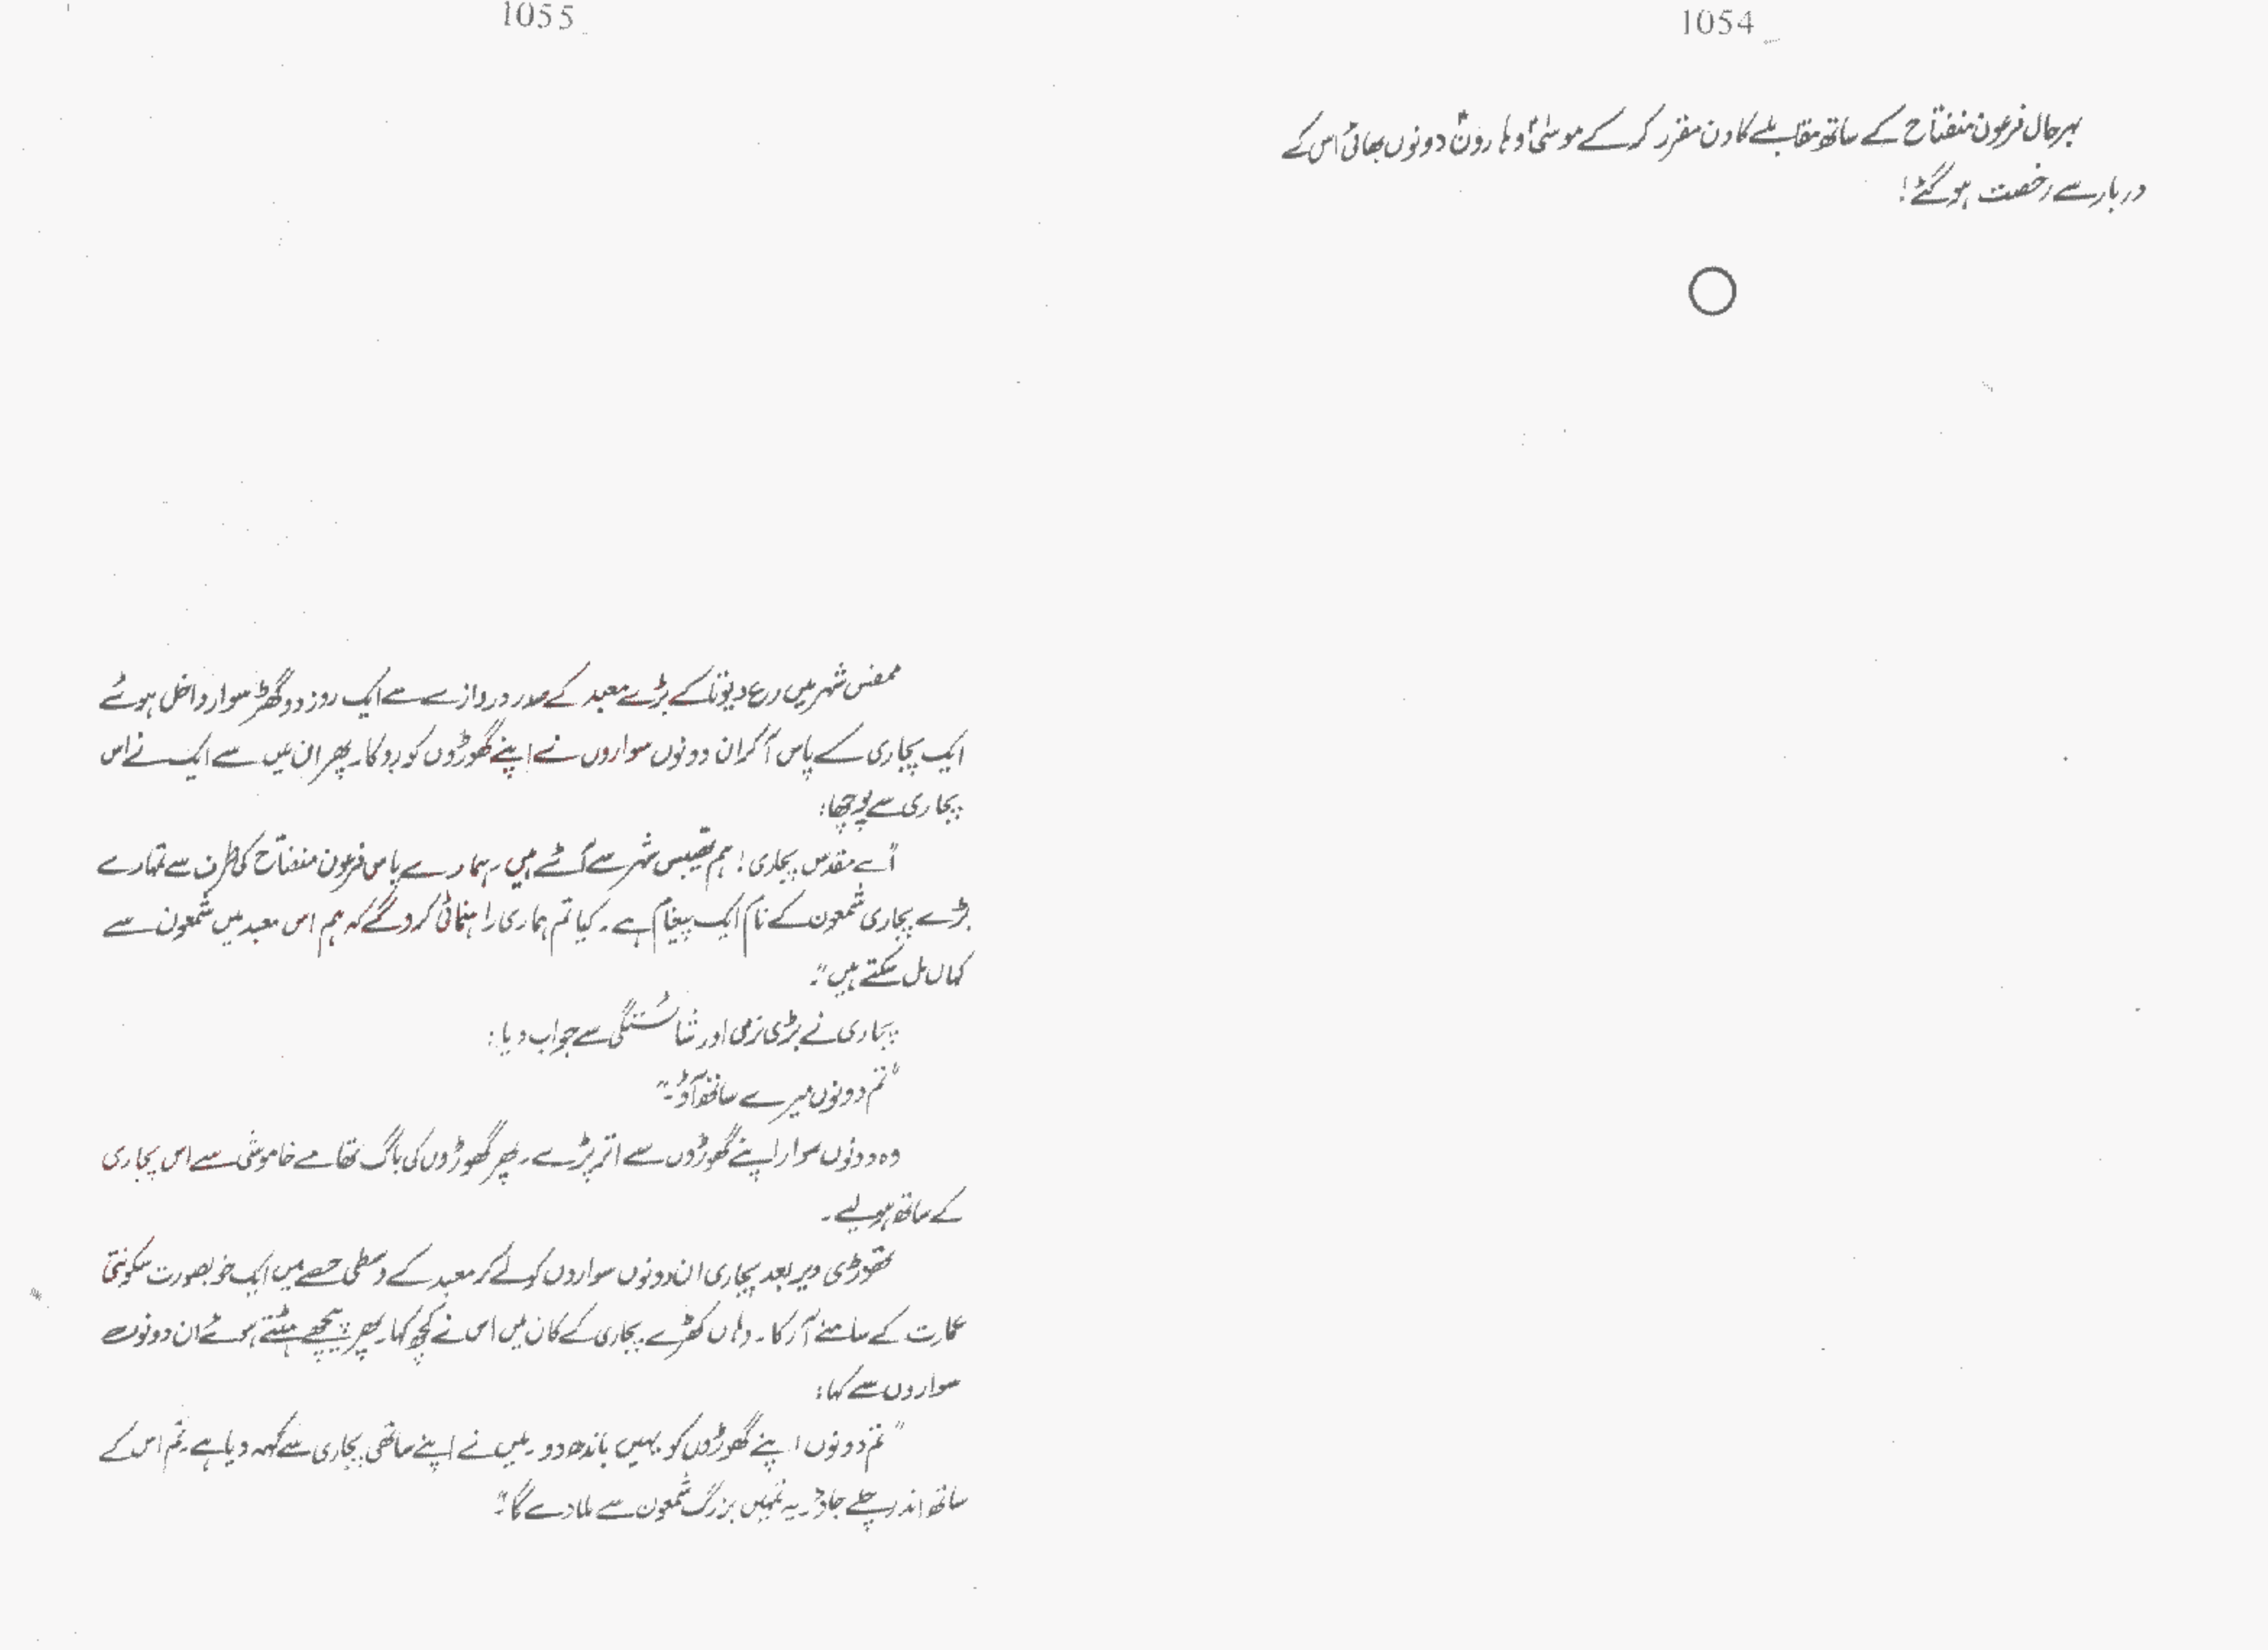 1054
بہرحال فرعون منفتاح کے ساتھ مقابلے کا دن مقرر کر کے موسیٰؑ و ہارونؑ دونوں بھائی اس کے
دربار سے رخصت ہو گئے!
1055
ممفس شہر میں رع دیوتا کے بڑے معبد کے صدر دروازے سے ایک روز دو گھڑ سوار داخل ہوئے
ایک پجاری کے پاس آ کر ان دونوں سواروں نے اپنے گھوڑوں کو روکا۔ پھر ان میں سے ایک نے اس
پجاری سے پوچھا:
"اے مقدس پجاری! ہم تھیبس شہر سے آئے ہیں۔ ہمارے پاس فرعون منفتاح کی طرف سے تمہارے
بڑے پجاری شمعون کے نام ایک پیغام ہے۔ کیا تم ہماری راہنمائی کرو گے کہ ہم اس معبد میں شمعون سے
کہاں مل سکتے ہیں"۔
پجاری نے بڑی نرمی اور شائستگی سے جواب دیا:
"تم دونوں میرے ساتھ آؤ۔"
وہ دونوں سوار اپنے گھوڑوں سے اتر پڑے۔ پھر گھوڑوں کی باگ تھامے خاموشی سے اس پجاری
کے ساتھ ہو لیے۔
تھوڑی دیر بعد پجاری ان دونوں سواروں کو لے کر معبد کے وسطی حصے میں ایک خوبصورت سکونتی
عمارت کے سامنے آ رکا۔ وہاں کھڑے پجاری کے کان میں اس نے کچھ کہا۔ پھر پیچھے ہٹتے ہوئے ان دونوں
سواروں سے کہا:
"تم دونوں اپنے گھوڑوں کو یہیں باندھ دو۔ میں نے اپنے ساتھی پجاری سے کہہ دیا ہے۔ تم اس کے
ساتھ اندر چلے جاؤ۔ یہ تمہیں بزرگ شمعون سے ملا دے گا"۔